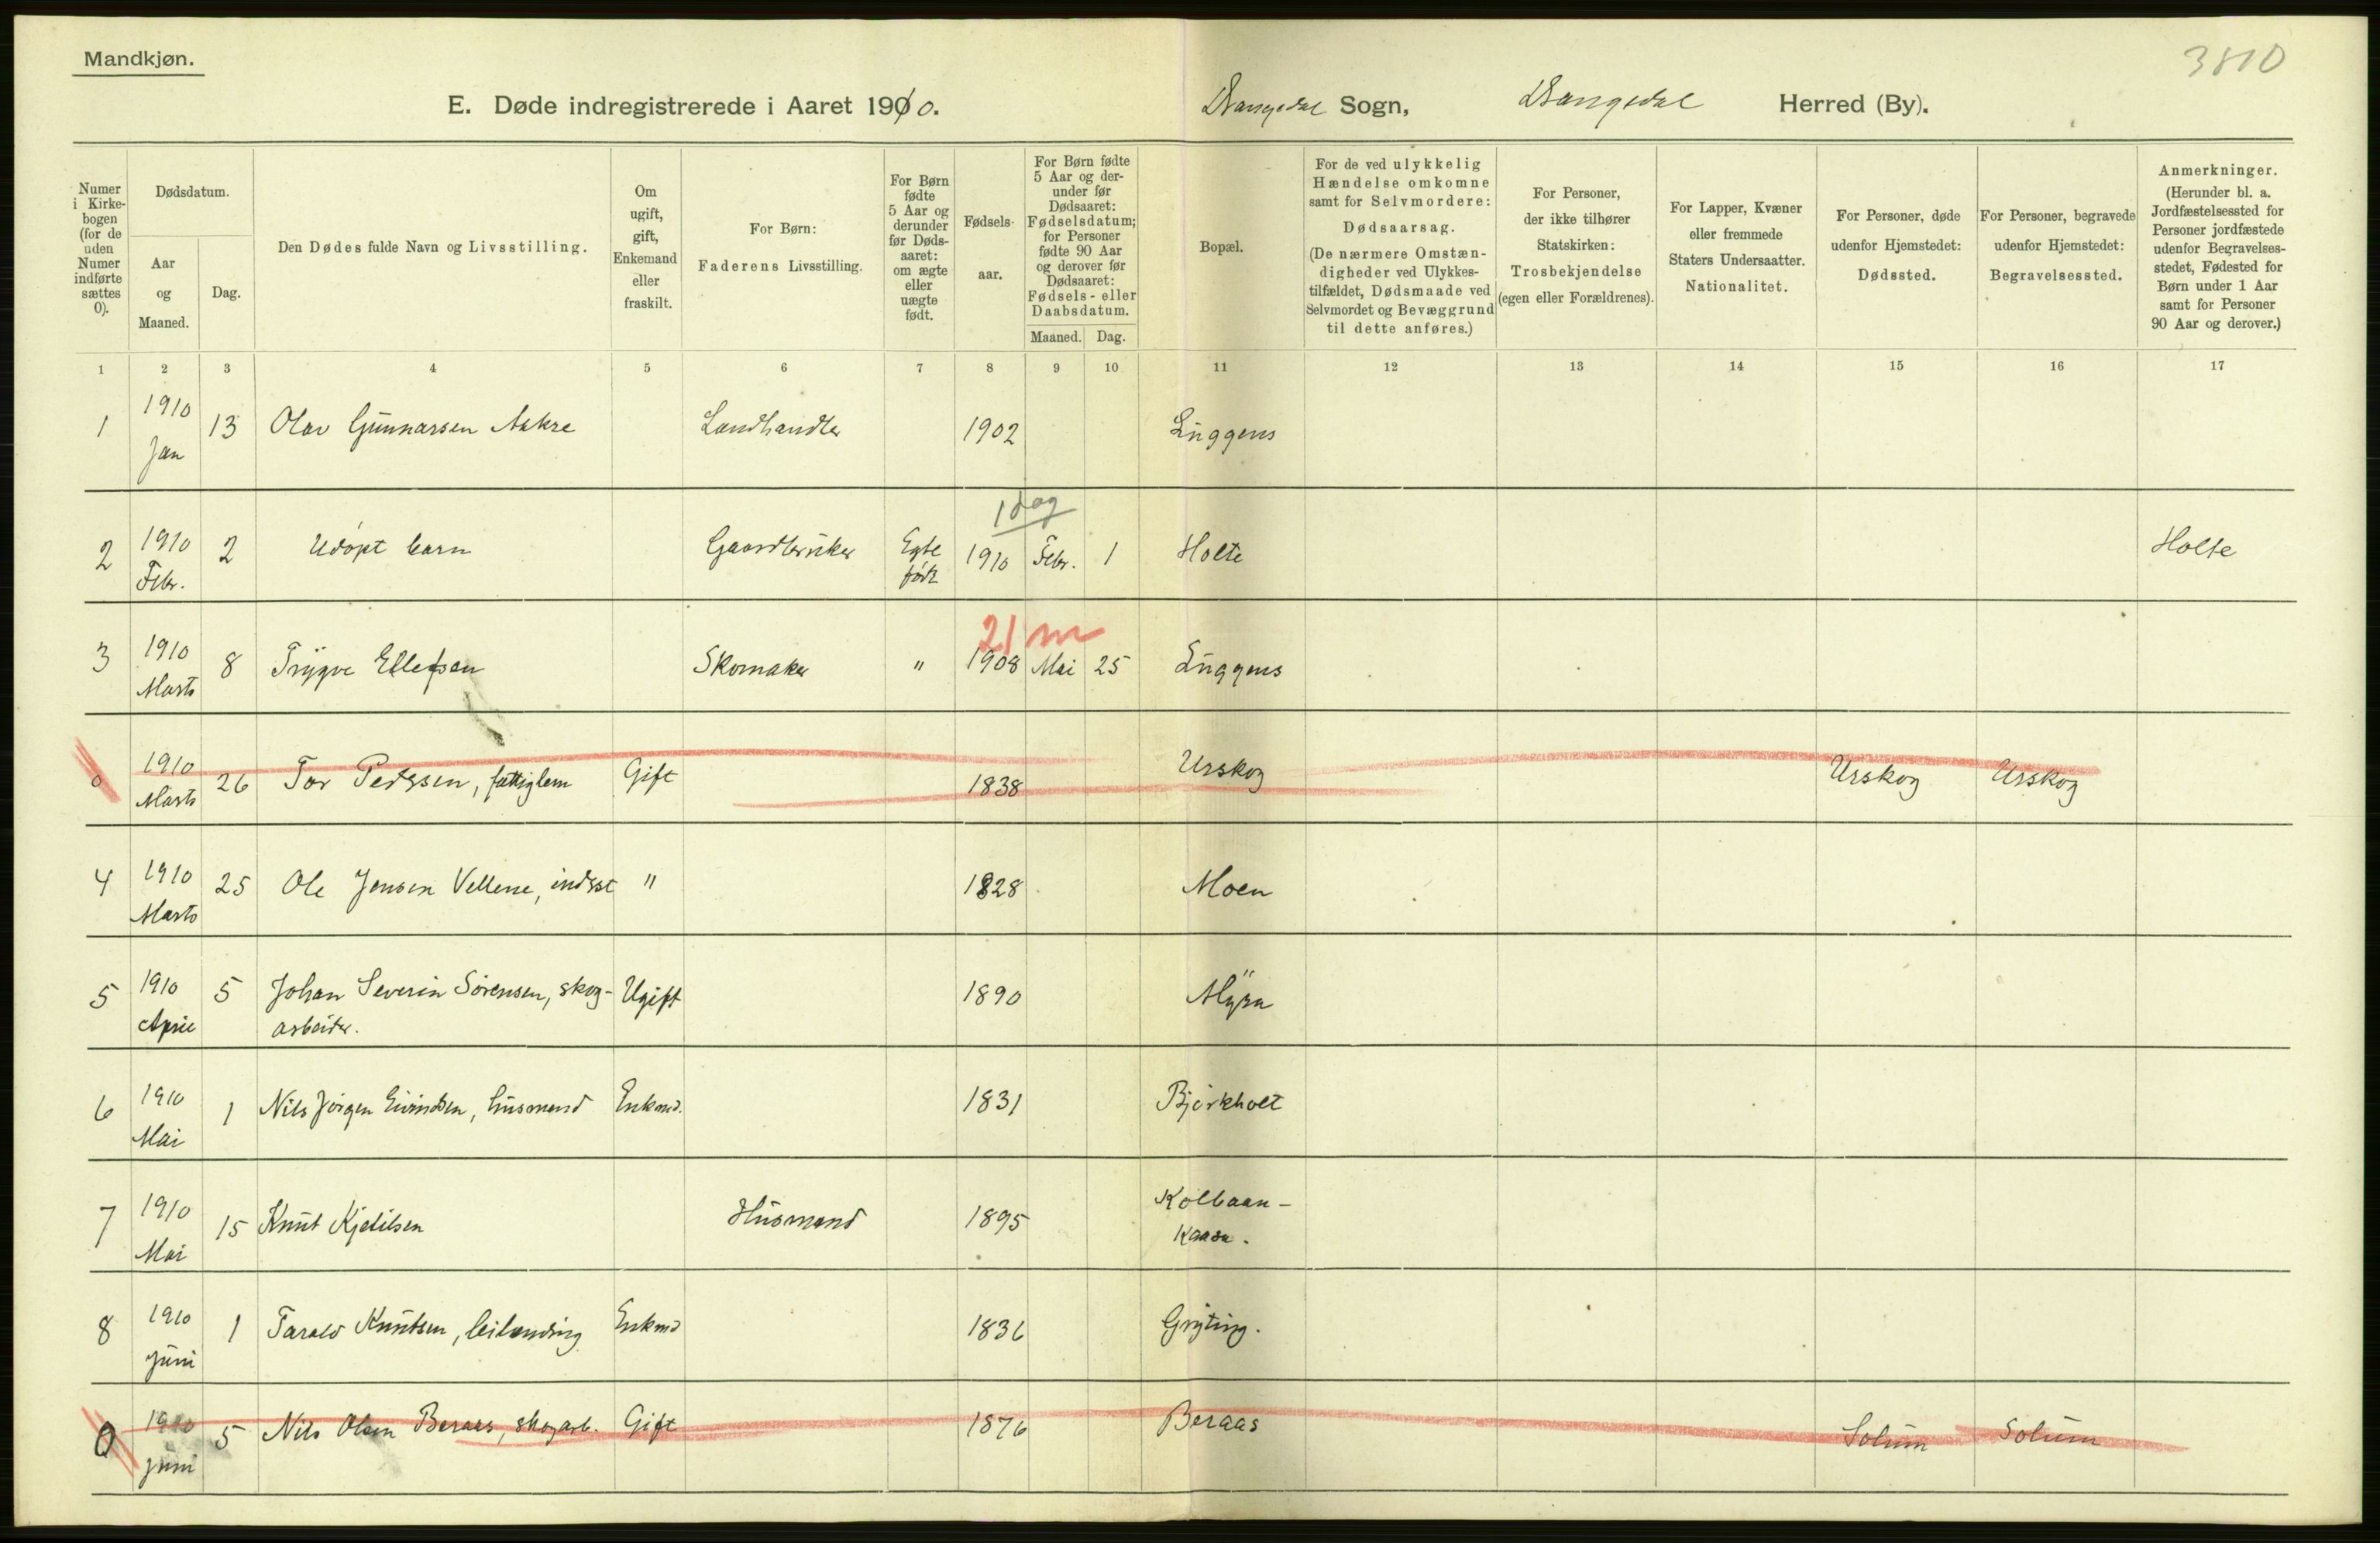 Mandkjøn.
3810
E. Døde indregistrerede i Aaret 1910.
Drangedal Sogn, Drangedal Herred (By).
Numer i Kirkebogen (for de uden Numer indførte sættes 0).
Dødsdatum.
Aar og Maaned.
Dag.
Den Dødes fulde Navn og Livsstilling.
Om ugift, gift, Enkemand eller fraskilt.
For Børn: Faderens Livsstilling.
For Børn fødte 5 Aar og derunder før Dødsaaret: om ægte eller uægte født.
Fødselsaar.
For Børn fødte 5 Aar og derunder før Dødsaaret: Fødselsdatum; for Personer fødte 90 Aar og derover før Dødsaaret: Fødsels- eller Daabsdatum.
Maaned. Dag.
Bopæl.
For de ved ulykkelig Hændelse omkomne samt for Selvmordere: Dødsaarsag. (De nærmere Omstændigheder ved Ulykkestilfældet, Dødsmaade ved Selvmordet og Bevæggrund til dette anføres.)
For Personer, der ikke tilhører Statskirken: Trosbekjendelse (egen eller Forældrenes).
For Lapper, Kvæner eller fremmede Staters Undersaatter. Nationalitet.
For Personer, døde udenfor Hjemstedet: Dødssted.
For Personer, begravede udenfor Hjemstedet: Begravelsessted.
Anmerkninger. (Herunder bl. a. Jordfæstelsessted for Personer jordfæstede udenfor Begravelsesstedet, Fødested for Børn under 1 Aar samt for Personer 90 Aar og derover.)
1 2 3 4 5 6 7 8 9 10 11 12 13 14 15 16 17
1 1910 Jan 13 Olav Gunnarsen Aakre Landhandler 1902 Luggens
1 dag
2 1910 Febr. 2 Udøpt barn Gaardbruker Egte født 1910 Febr. 1 Holte Holte
21 m
3 1910 Marts 8 Trygve Ellefsen Skomaker " 1908 Mai 25 Luggens
0 1910 Marts 26 Tor Pedersen, fattiglem Gift 1838 Urskog Urskog Urskog
4 1910 Marts 25 Ole Jensen Vellene, inderst " 1828 Moen
5 1910 April 5 Johan Severin Sørensen, skog- Ugift 1890 Myra
arbeider.
6 1910 Mai 1 Nils Jørgen Eivindsen, husmand Enkmd. 1831 Bjørkholt
7 1910 Mai 15 Knut Kjetilsen Husmand 1895 Kolbaan-
Kaasa.
8 1910 juni 1 Tarald Knutsen, leilænding Enkmd 1836 Gryting.
0 1910 juni 5 Nils Olsen Beraas, skogarb. Gift 1876 Beraas Solum Solum